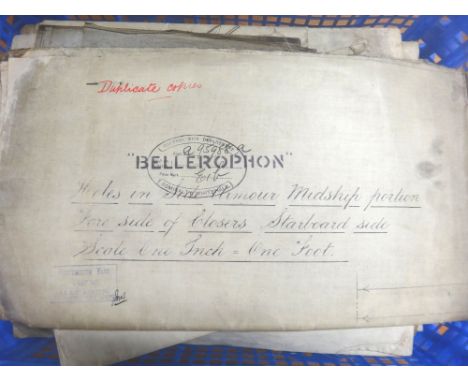 Duplicate copies
a 95988 a
"BELLEROPHON"
Holes in Side Armour Midship portion
Fore side of Closers Starboard side
Scale One Inch = One Foot.